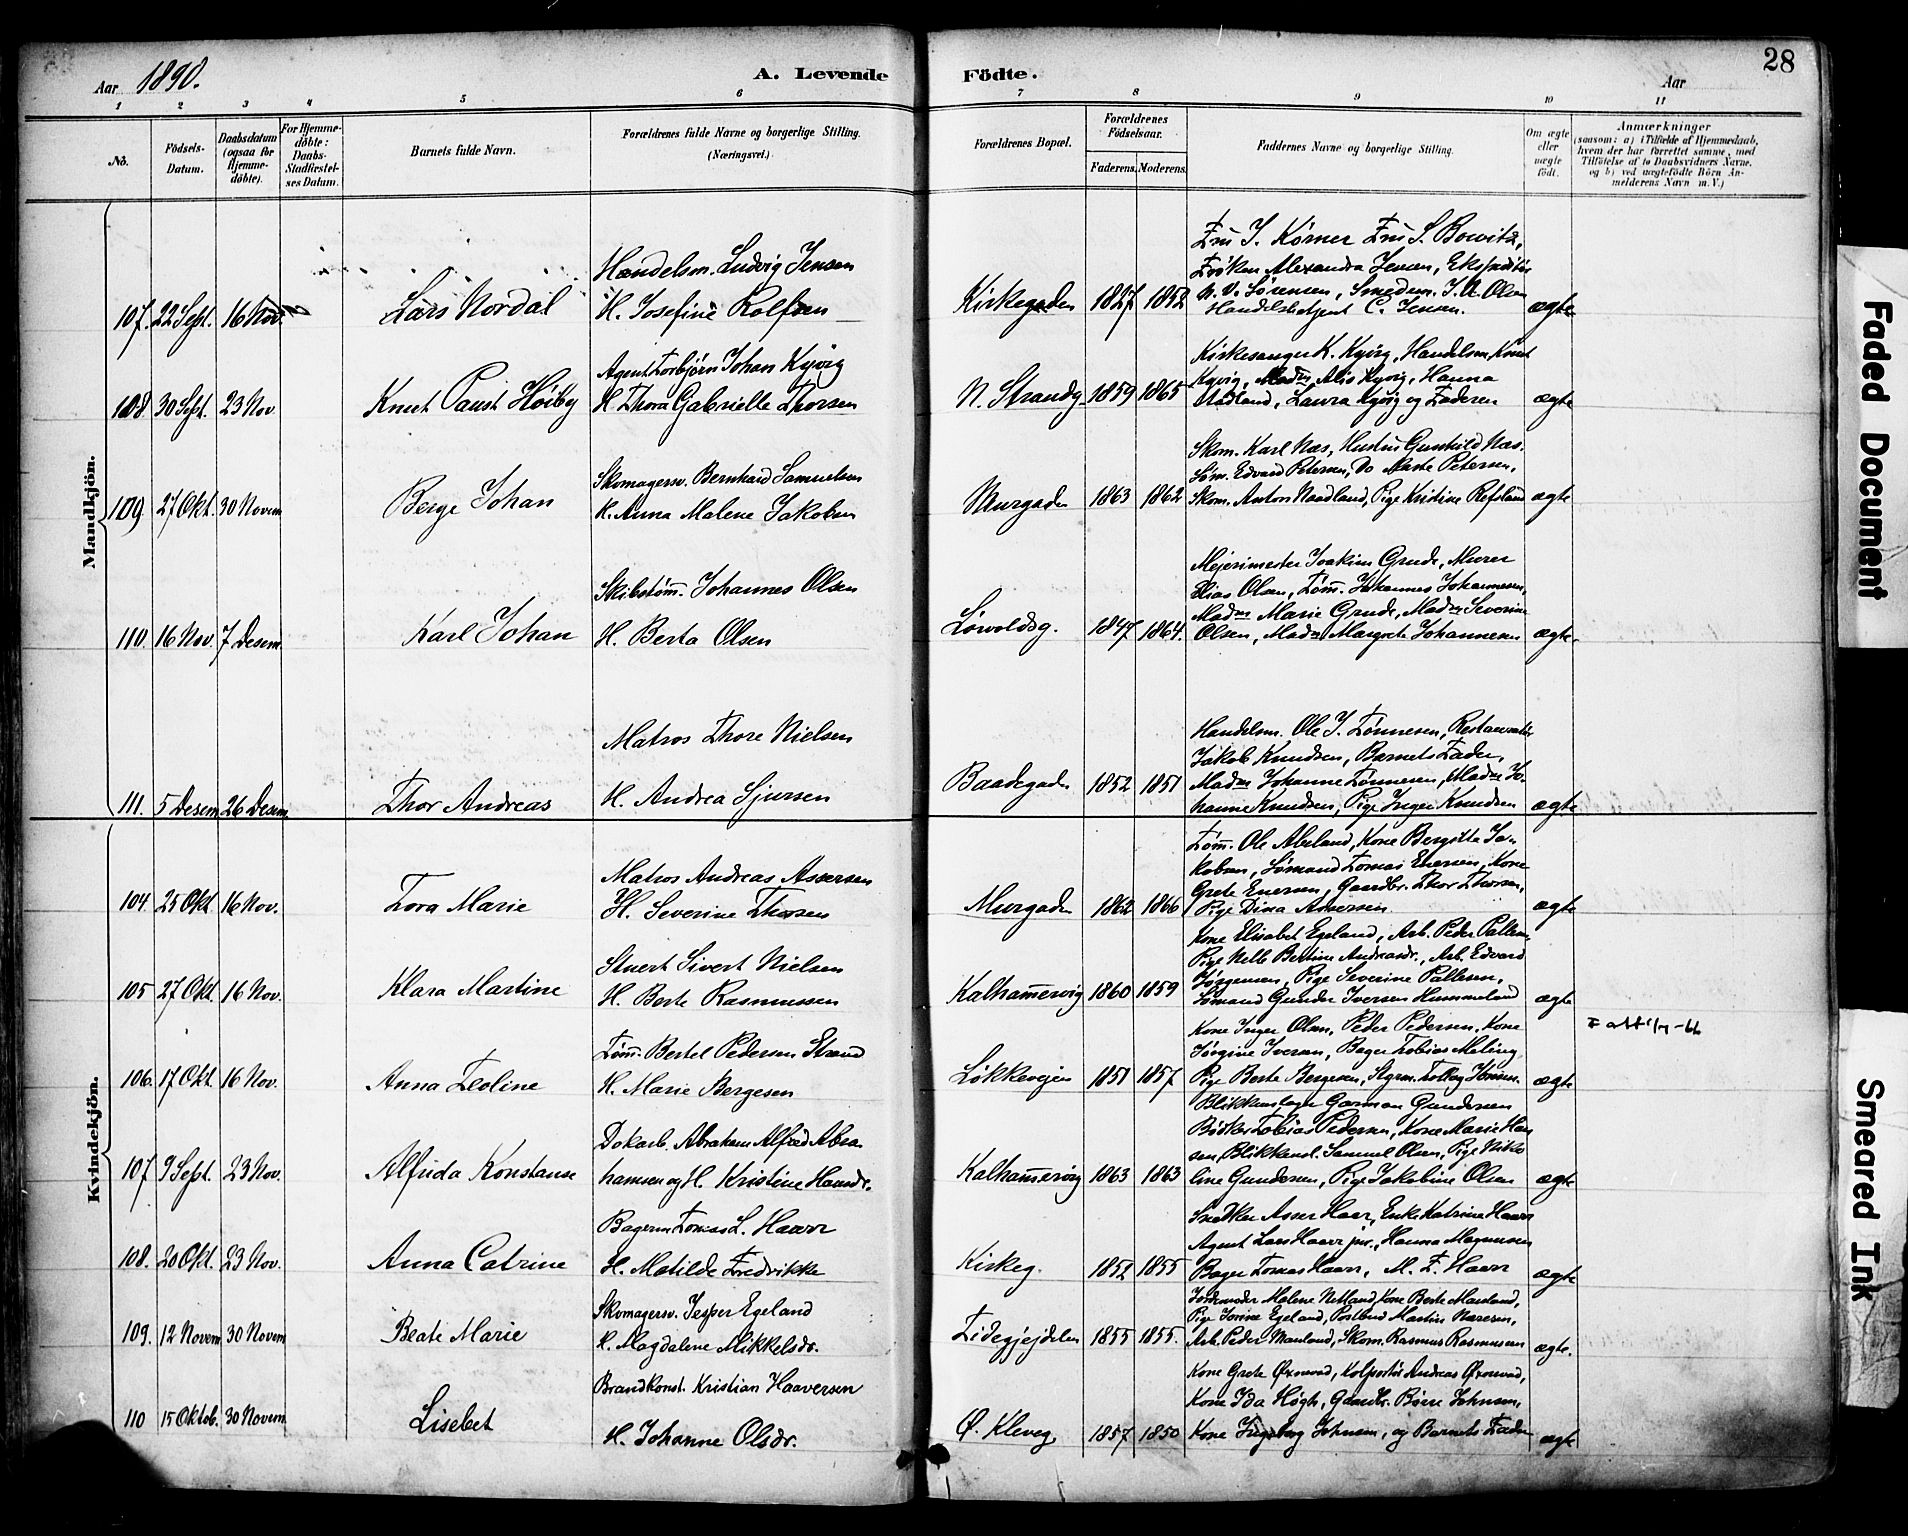 Aar 1890.
A. Levende Födte.
Aar
28
1 2 3 4 5 6 7 8 9 10 11
No.
Födsels-Datum.
Daabsdatum (ogsaa for Hjemme-döbte).
For Hjemme-döbte: Daabs-Stadfæstel-ses Datum.
Barnets fulde Navn.
Forældrenes fulde Navne og borgerlige Stilling.
(Næringsvei.)
Forældrenes Bopæl.
Forældrenes Födselsaar.
Faderens. Moderens.
Faddernes Navne og borgerlige Stilling.
Om ægte eller uægte födt.
Anmærkninger
(saasom: a) i Tilfælde af Hjemmedaab, hvem der har forrettet samme, med Tilföielse af to Daabsvidners Navne, og b) ved uægtefödte Börn An-melderens Navn m. V.)
Mandkjön.
107. 22 Sept. 16 Nov. Lars Nordal
Handelsm. Ludvig Jensen
H. Josefine Rolfsen
Kirkegaden 1827 1852
Fru J. Körner Fru S. Bowitz,
Fröken Alexandra Jensen, Ekspeditör
N. V. Sörensen, Smedm. J. A. Olsen
Handelsbetjent C. Jensen.
ægte
108. 30 Sept. 23 Nov. Knut Paust Höiby
Agent Torbjörn Johan Kyvig
H. Thora Gabrielle Thorsen
N. Strandg. 1859 1865
Kirkesanger K. Kyvig, Handelsm Knut
Kyvig, Madm Alis Kyvig, Hanna
Stadland, Laura Kyvig og Faderen
ægte
109 27 Okt. 30 Novem Berge Johan
Skomagersv. Bernhard Samuelsen
H. Anna Malene Jakobsen
Murgaden 1863 1862
Skom. Karl Næs, Hustru Gunhild Næs.
Söm. Edvard Petersen, Do Marte Petersen,
Skom. Anton Naadland, Pige Kristine Refsland
ægte
110. 16 Nov. 7 Desem. Karl Johan
Skibstömm. Johannes Olsen
H. Berta Olsen
Lövoldsg. 1847 1864.
Mejerimester Joakim Grude, Murer
Elias Olsen, Tömm. Johannes Johannesen,
Madm Marie Grude, Madm Severine
Olsen, Madm Margrete Johannesen
ægte.
111. 5 Desem 26 Desem. Thor Andreas
Matros Thore Nielsen
H. Andrea Sjursen
Baadegaden 1852 1851
Handelsm. Ole J. Tönnesen, Restauratör
Jakob Knudsen, Barnets Fader,
Madm Johanne Tönnesen, Madm Jo-
hanne Knudsen, Pige Inger Knudsen
ægte
Kvindekjön.
104 25 Okt. 16 Nov. Tora Marie
Matros Andreas Assersen
H. Severine Thorsen
Murgaden 1862 1866
Tömm. Ole Abeland, Kone Bergitte Ja-
kobsen, Sömand Tomas Enersen, Kone
Grete Enersen, Gaardbr. Thor Thorsen,
Pige Dina Assersen.
ægte
105 27 Okt. 16 Nov. Klara Martine
Stuert Sivert Nielsen
H. Berte Rasmussen
Kalhammervig 1860 1859
Kone Elisabet Egeland, Arb. Peder Pallesen,
Pige Nelle Bertine Andreasdr., Arb. Edvard
Jörgensen, Pige Severine Pallesen,
Sömand Gunder Iversen Hummeland
ægte
106. 17 Okt. 16 Nov. Anna Teoline
Tömm. Bertel Pedersen Strand
H. Marie Bergesen
Lökkevejen 1851 1857
Kone Inger Olsen, Peder Pedersen, Kone
Jörgine Iversen, Bager Tobias Maling,
Pige Berte Bergesen,
ægte
107 9 Sept. 23 Nov. Alfrida Konstanse
Dokarb. Abraham Alfred Abra-
hamsen og H. Kristine Hansdr.
Kalhammervig 1863 1863
Blikkenslager Garman Gundersen
Bödker Tobias Pedersen, Kone Marie Han
sen, Blikkensl. Samuel Olsen, Pige Niko
line Gundersen, Pige Jakobine Olsen
ægte
108. 20 Okt. 23 Nov. Anna Catrine
Bagerm Tomas L. Haavr
H. Matilde Fredrikke
Kirkeg. 1852 1855
Snedker Asser Haavr, Enke Katrine Haavr
Agent Lars Haavr jnr., Hanna Magnussen
Bager Tomas Haavr, M. F. Haavr
ægte
109. 12 Novem 30 Novem Beate Marie
Skomagersv. Jesper Egeland
H. Magdalene Mikkelsdr.
Lidegjejdelen 1855 1855.
Jordemoder Malene Netland, Kone Berte Mauland,
Pige Jonine Egeland, Postbud Martin
Arb. Peder Mauland, Skom. Rasmus Rasmussen
ægte.
110 15 Oktob. 30 Novem Lisebet
Brandkonst. Kristian Haaversen
H. Johanne Olsdr.
Ö. Kleveg. 1857 1850
Kone Grete Öxmund, Kolportör Andreas Öxmund,
Kone Ida Högh, Gaardbr. Börre Johnsen,
Kone Ingeborg Johnsen, og Barnets Fader
ægte
Faded Document
Smeared Ink